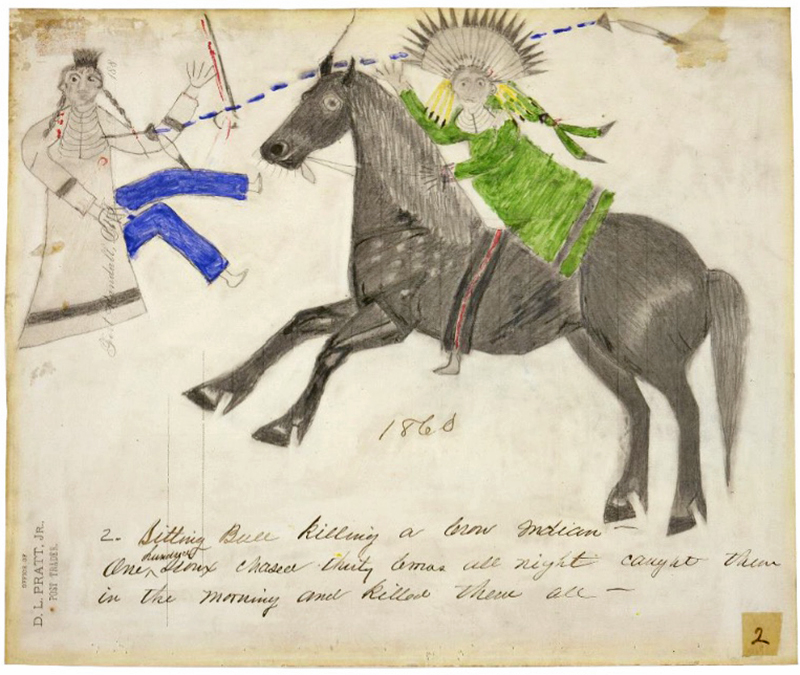 Fort Randall,
188
2. Sitting Bull killing a Crow Indian —
One hundred Sioux chased thirty Crows all night caught them
in the morning and killed them all —
OFFICE OF
D. L. PRATT, JR.
POST TRADER.
2